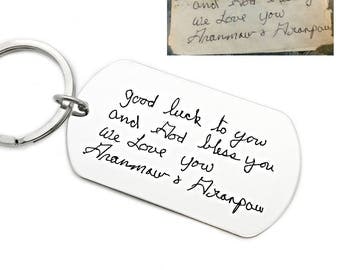 and God bless you
We Love you
Granmaw & Granpaw
good luck to you
and God bless you
We Love you
Granmaw & Granpaw